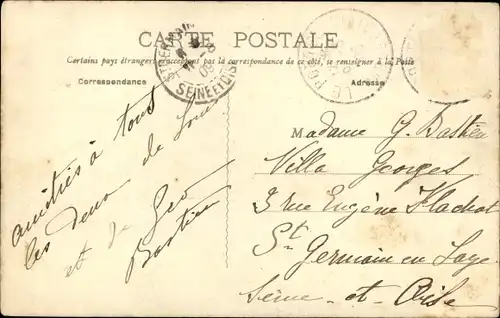 CARTE POSTALE
Certains pays étrangers n'acceptent pas la correspondance de ce côté, se renseigner à la Poste
Correspondance
Adresse
ST GERMAIN
SEINE ET OISE
LE
amitiés à tous
les deux de
et de Geo
Bastien
Madame G. Bastien
Villa Georges
3 rue Eugène Flachat
St Germain en Laye
Seine-et-Oise